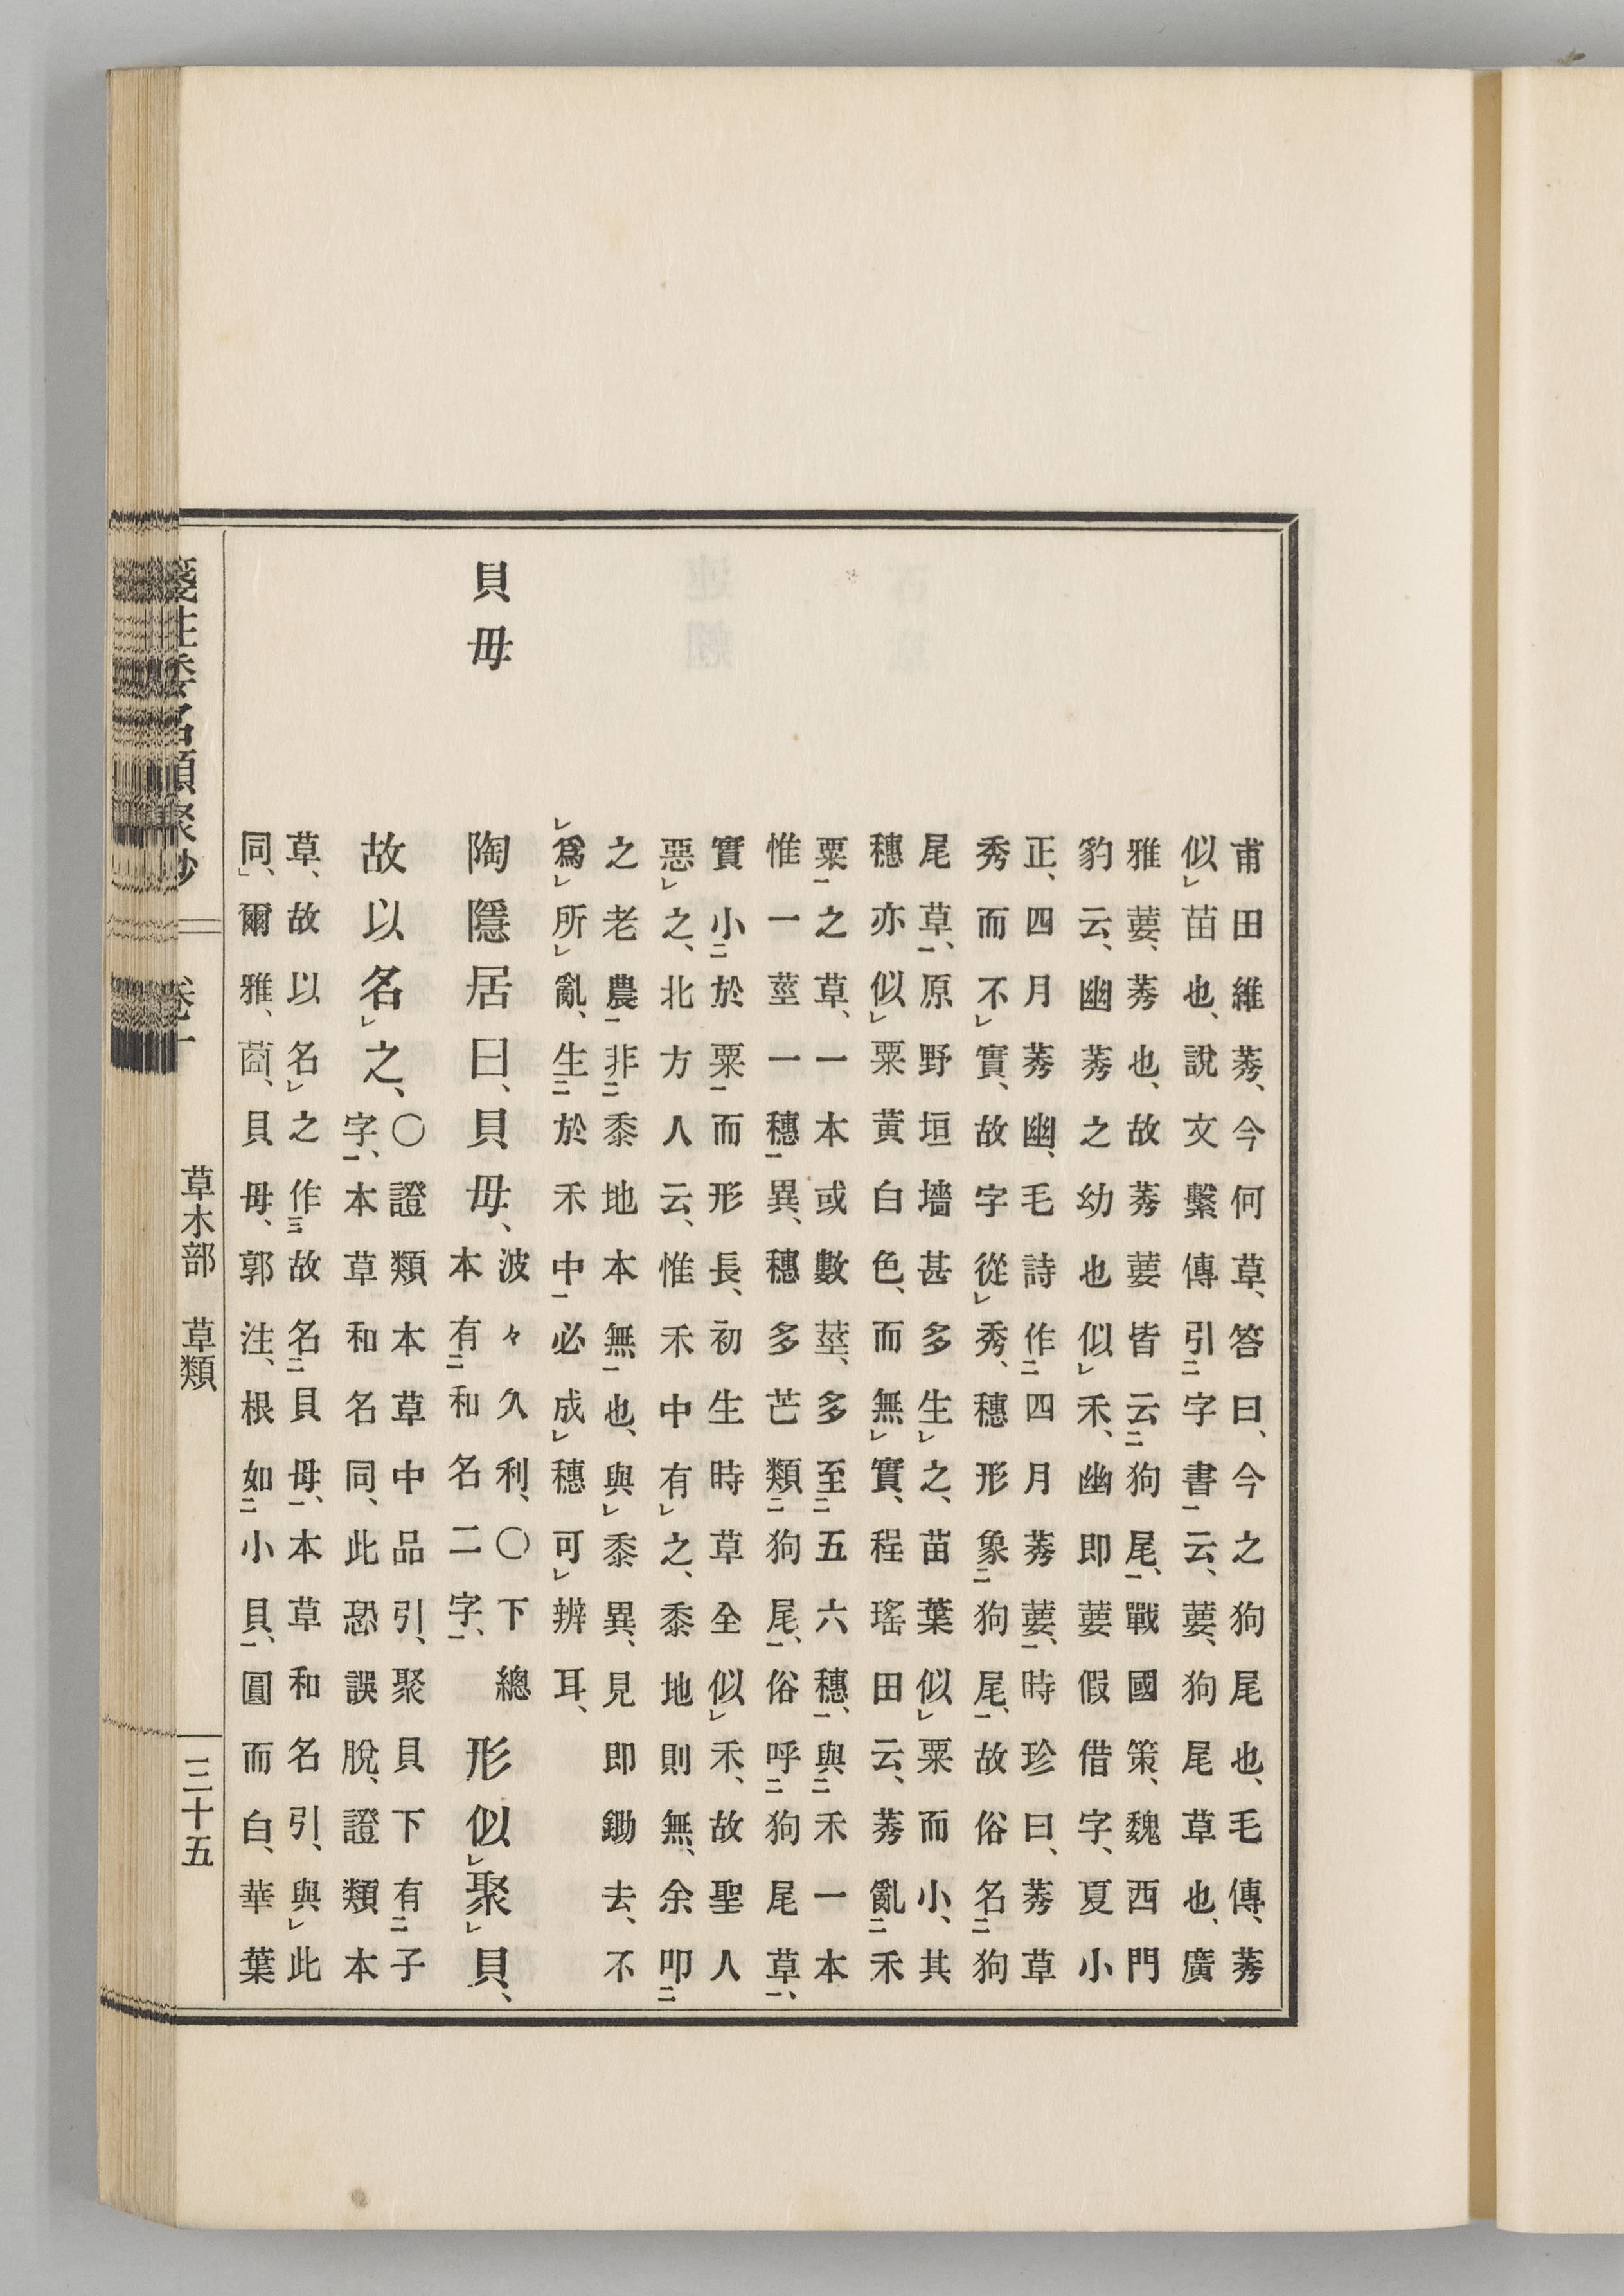 甫田維莠、今何草、答曰、今之狗尾也、毛傳、莠
似㆑苗也、說文繫傳引㆓字書㆒云、葽、狗尾草也、廣
雅葽、莠也、故莠葽皆云㆓狗尾㆒、戰國策、魏西門
豹云、幽莠之幼也似㆑禾、幽即葽假借字、夏小
正、四月莠幽、毛詩作㆓四月莠葽㆒、時珍曰、莠草
秀而不㆑實、故字從㆑秀、穗形象㆓狗尾㆒、故俗名㆓狗
尾草㆒、原野垣墻甚多生㆑之、苗葉似㆑粟而小、其
穗亦似㆑粟黃白色、而無㆑實、程瑤田云、莠亂㆓禾
粟㆒之草、一本或數莖、多至㆓五六穗㆒、與㆓禾一本
惟一莖一穗㆒異、穗多芒類㆓狗尾㆒、俗呼㆓狗尾草㆒、
實小㆓於粟㆒而形長、初生時草全似㆑禾、故聖人
惡㆑之、北方人云、惟禾中有㆑之、黍地則無、余叩㆓
之老農㆒非㆓黍地本無㆒也、與㆑黍異、見即鋤去、不
㆑爲㆑所㆑亂、生㆓於禾中㆒必成㆑穗可㆑辨耳、
貝母
陶隱居曰、貝母、波々久利、〇下總本有㆓和名二字㆒、形似㆑聚㆑貝、
故以名㆑之、〇證類本草中品引、聚貝下有㆓子字㆒、本草和名同、此恐誤脫、證類本
草、故以名㆑之作㆔故名㆓貝母㆒、本草和名引、與㆑此
同、爾雅、莔、貝母、郭注、根如㆓小貝㆒、圓而白、華葉
卷十
草木部 草類
三十五